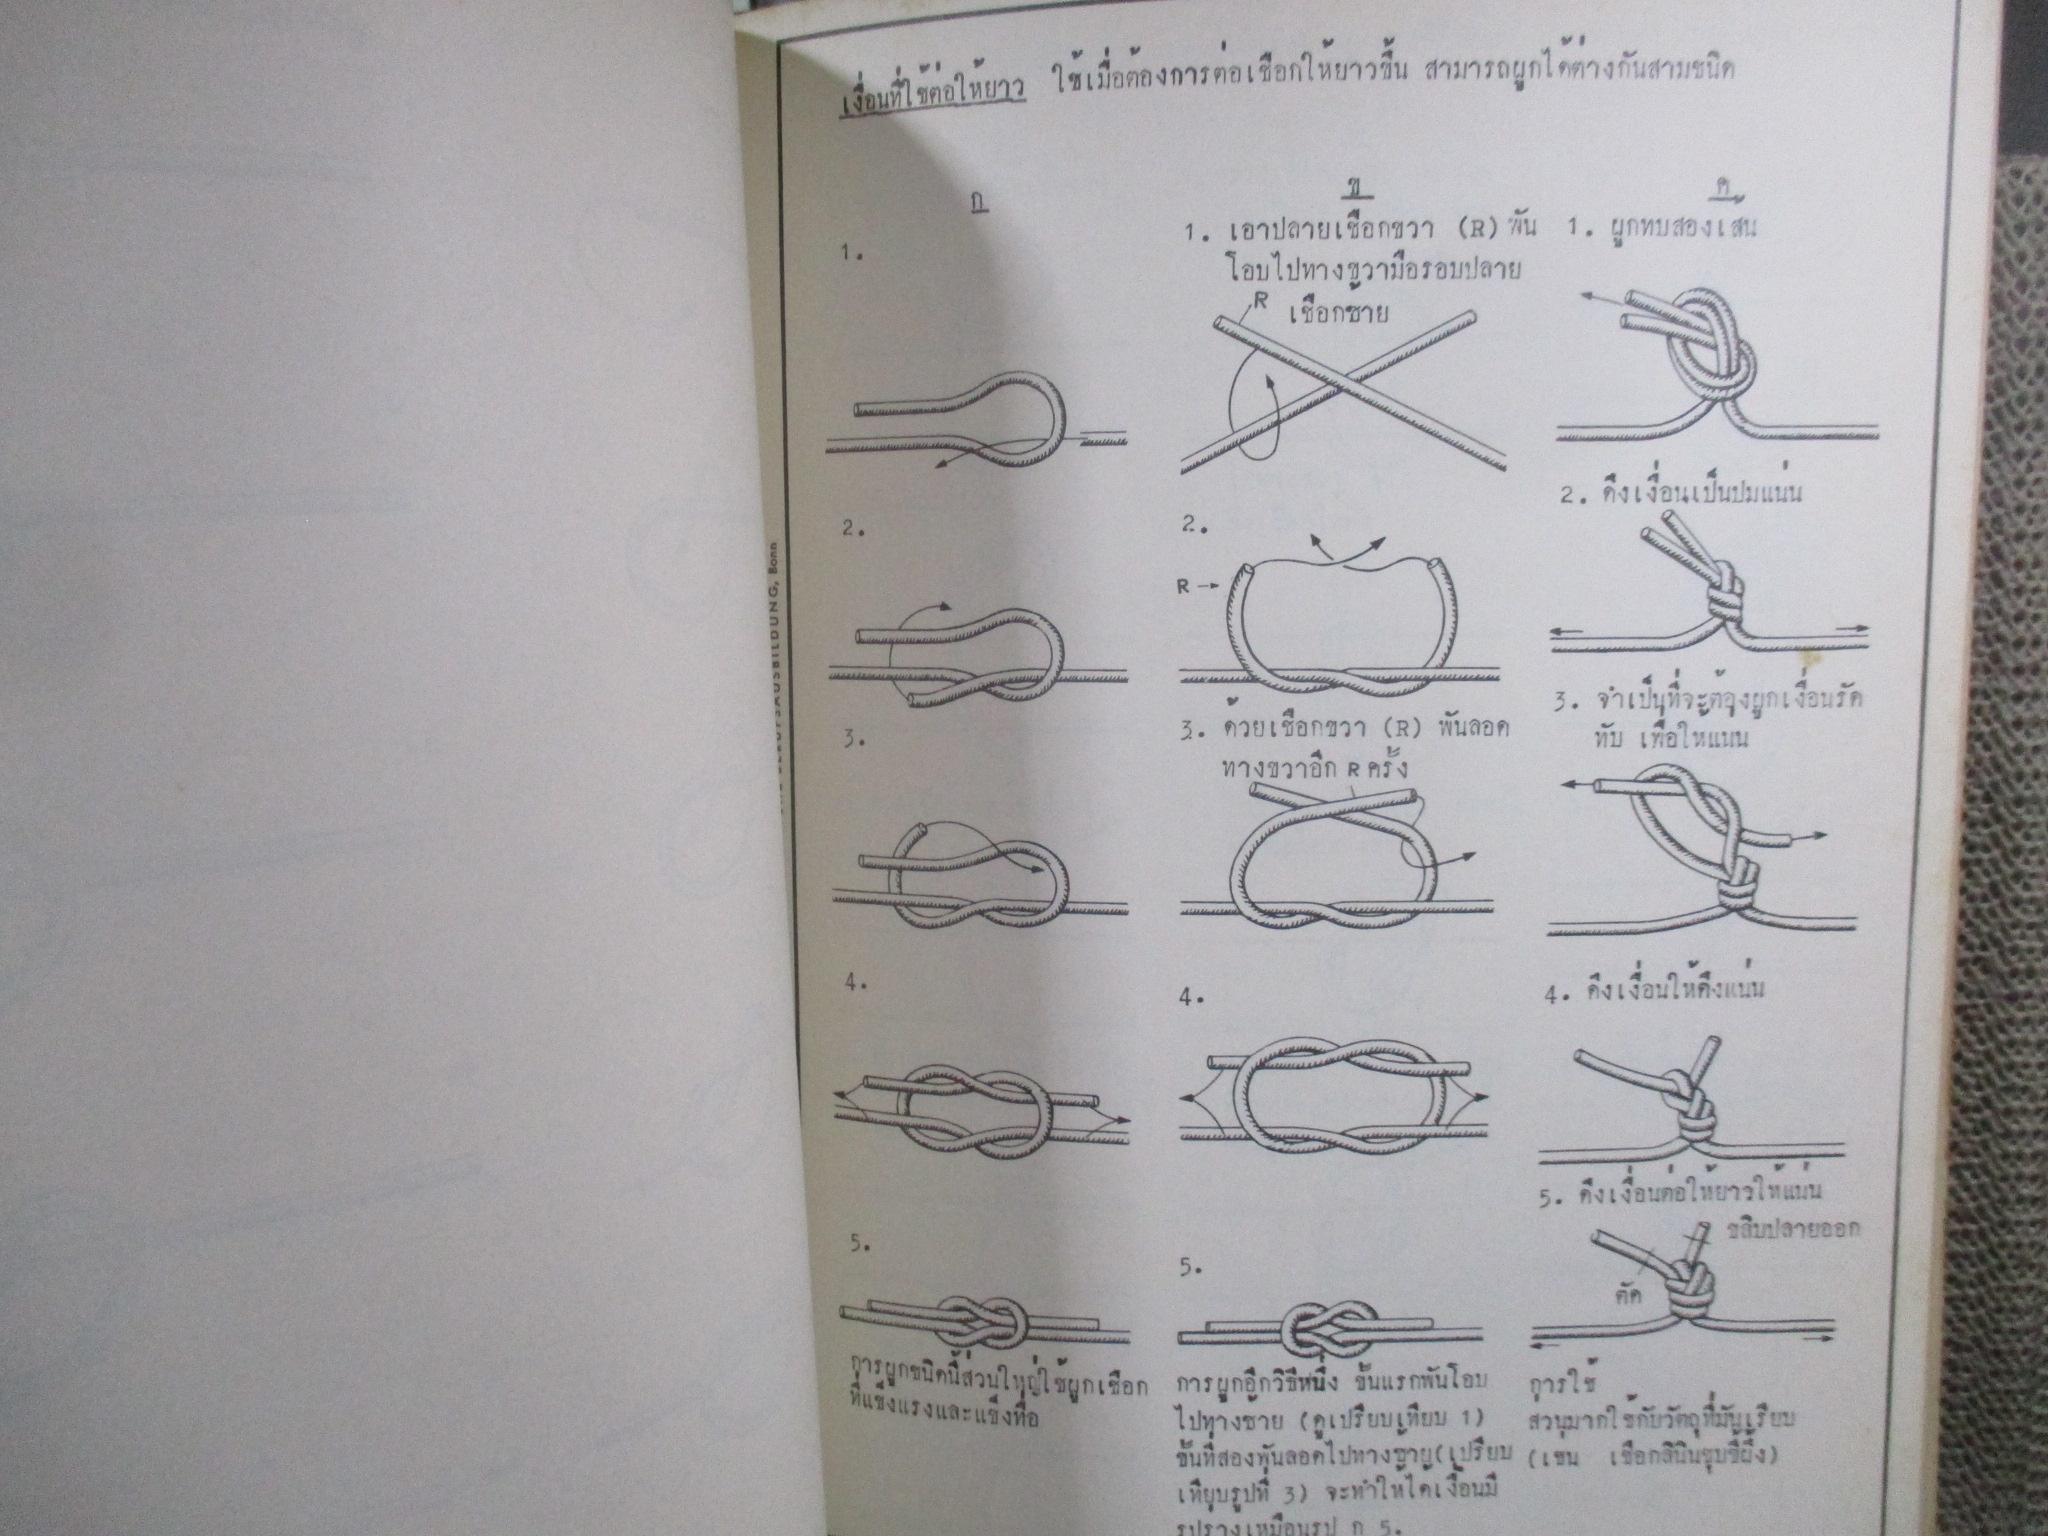 เงื่อนที่ใช้ต่อให้ยาว ใช้เมื่อต้องการต่อเชือกให้ยาวขึ้น สามารถผูกได้ต่างกันสามชนิด
ก
1.
2.
3.
4.
5.
การผูกชนิดนี้ส่วนใหญ่ใช้ผูกเชือก
ที่แข็งแรงและแข็งทื่อ
ข
1. เอาปลายเชือกขวา (R) พัน
โอบไปทางขวามือรอบปลาย
เชือกซ้าย
R
2.
R
3. ด้วยเชือกขวา (R) พันลอด
ทางขวาอีก R ครั้ง
4.
5.
การผูกอีกวิธีหนึ่ง ขั้นแรกพันโอบ
ไปทางซ้าย (ดูเปรียบเทียบ 1)
ขั้นที่สองพันลอดไปทางซ้าย(เปรียบ
เทียบรูปที่ 3) จะทำให้ได้เงื่อนมี
รูปร่างเหมือนรูป ก 5.
ค
1. ผูกทบสองเส้น
2. ดึงเงื่อนเป็นปมแน่น
3. จำเป็นที่จะต้องผูกเงื่อนรัด
ทับ เพื่อให้แน่น
4. ดึงเงื่อนให้ตึงแน่น
5. ดึงเงื่อนต่อให้ยาวให้แน่น
ขลิบปลายออก
ตัด
การใช้
ส่วนมากใช้กับวัตถุที่มันเรียบ
(เช่น เชือกลินินชุบขี้ผึ้ง)
BERUFSAUSBILDUNG, Bonn